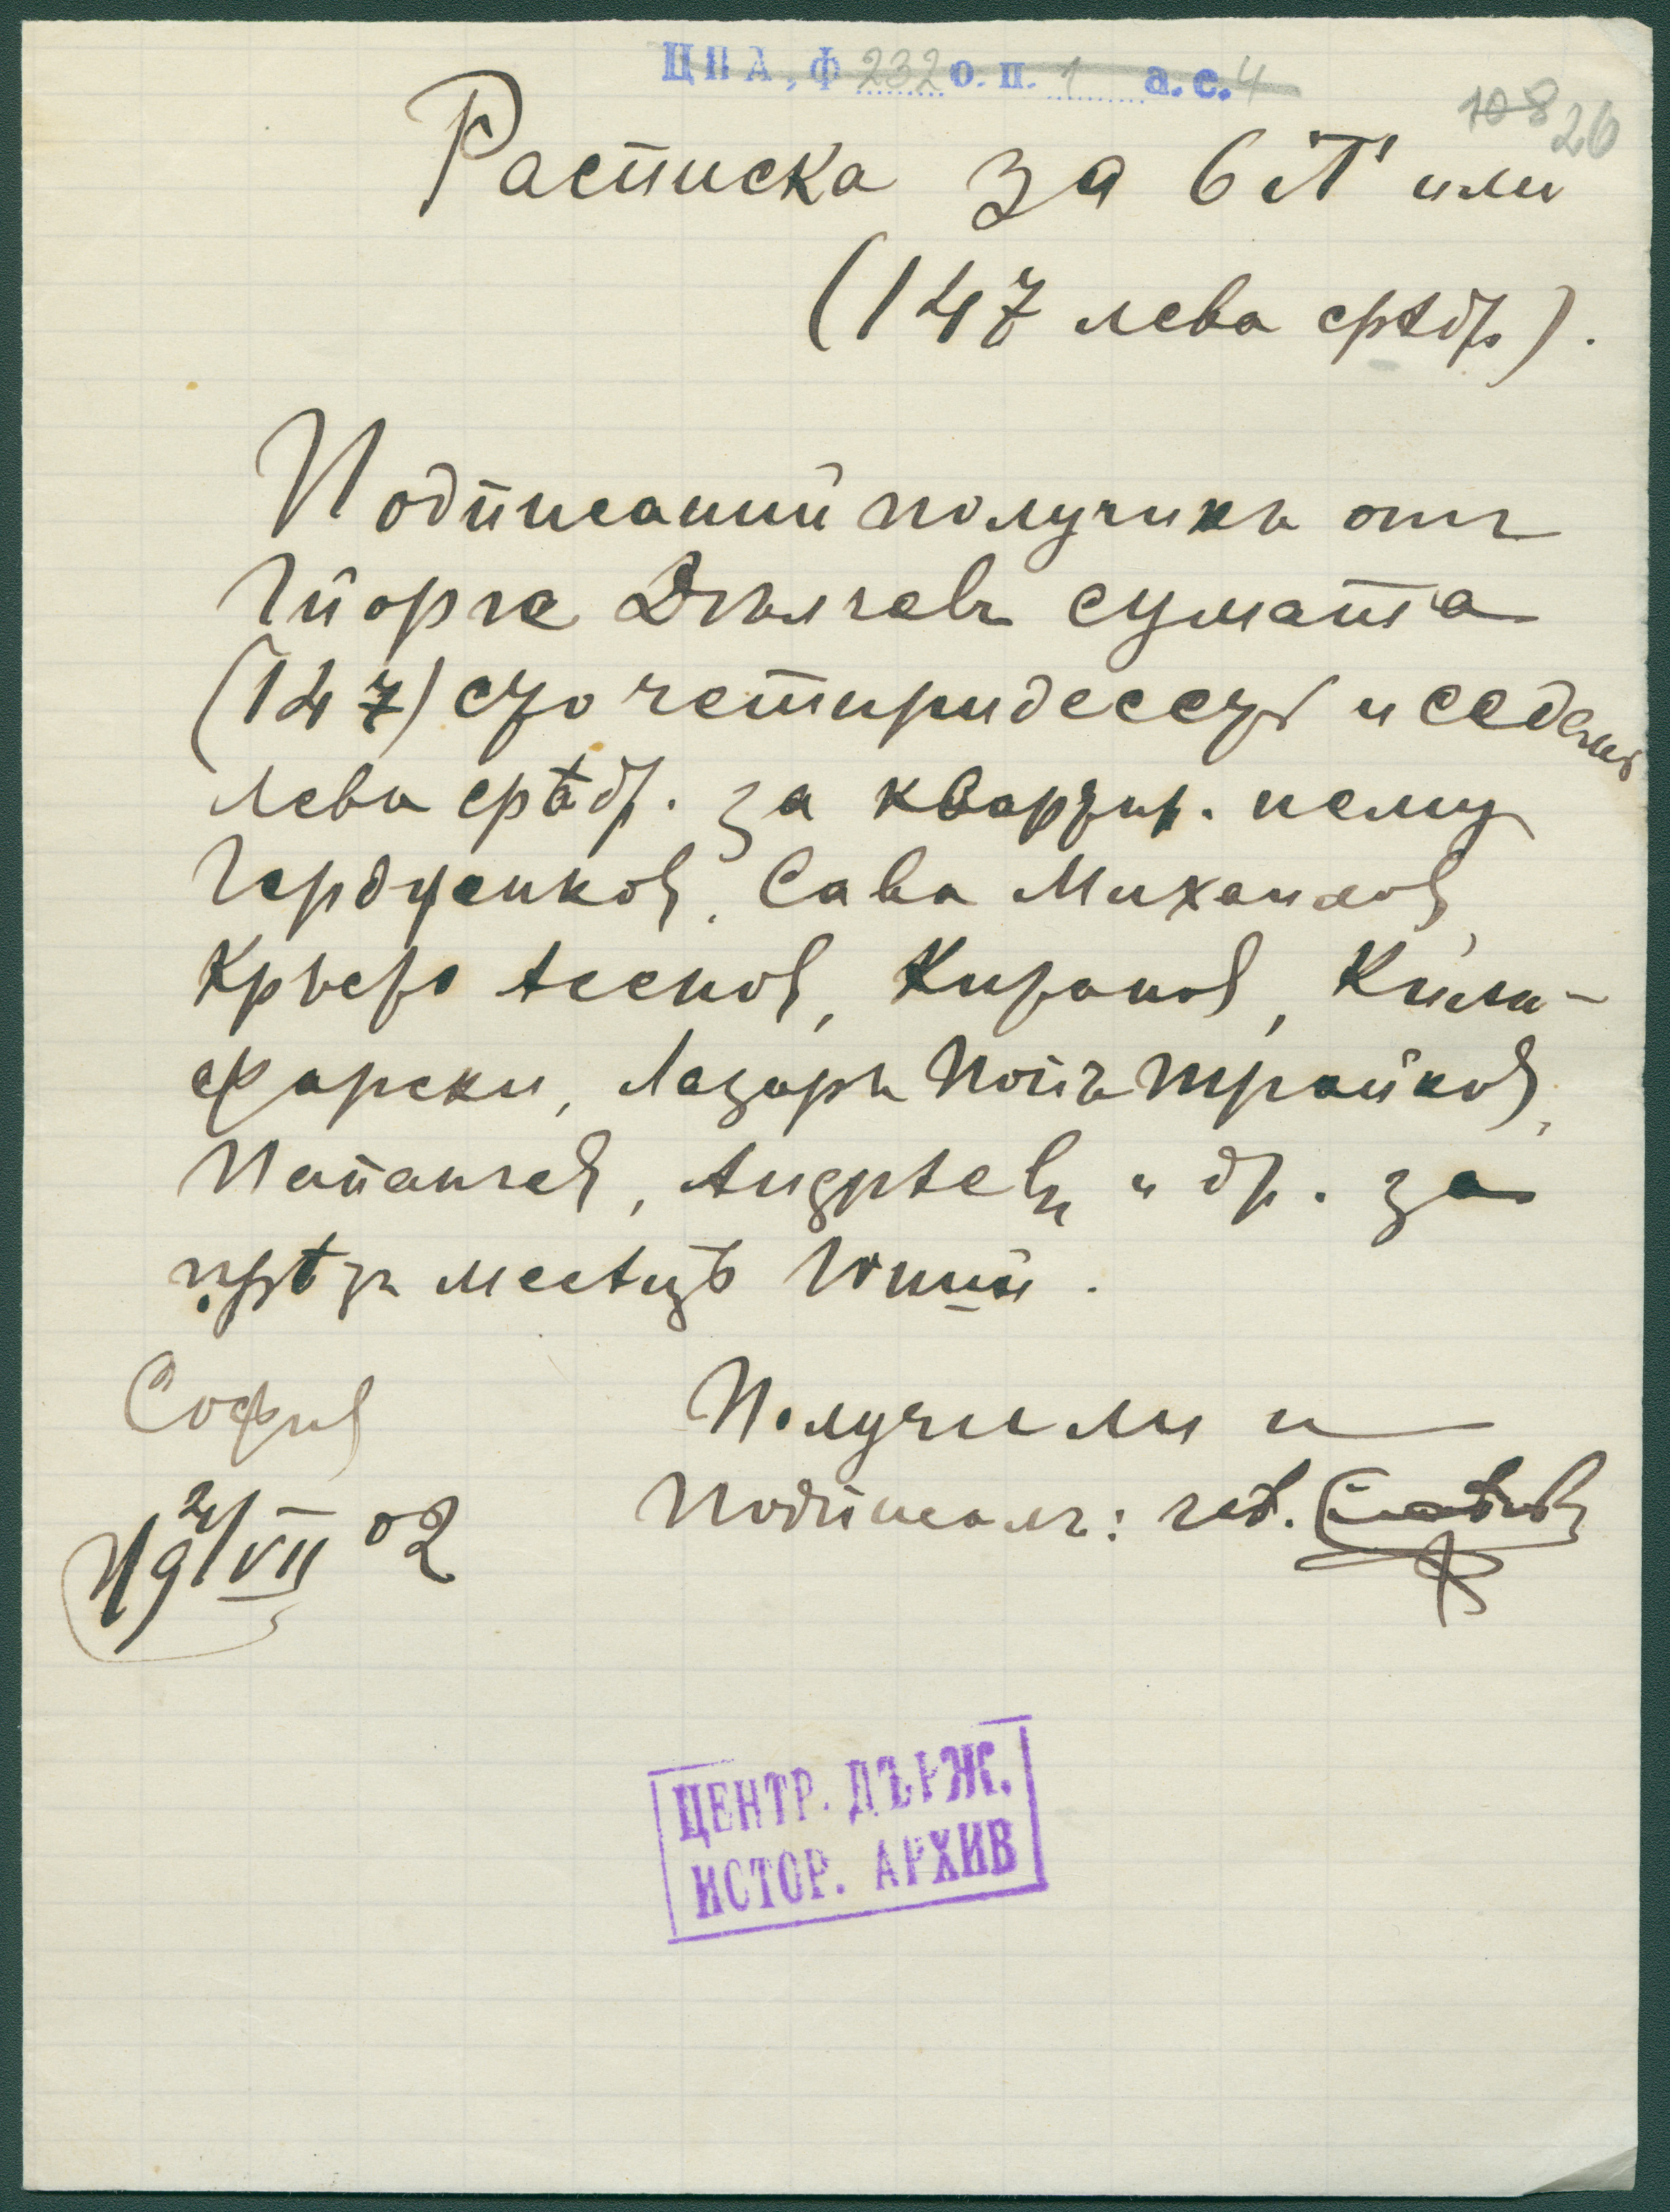 ЦПА, Ф 232 о. п. 1 а. е. 4
108 26
Расписка за 6 Т или
(147 лева срѣбр).
Подписаний получихъ отъ
Гйорге Дѣлчевъ сумата
(147) сто четиридесетъ и седемь
лева срѣбр. за квартир. нему
Герджиков, Сава Михаилов,
Кръсто Асенов, Киранов, Кили-
фарски, Лазаръ Попъ Трайков,
Папанчев, Андрѣевъ и др. за
прѣзъ месѣцъ Юний.
София
2/VII 02
Получили и
Подписалъ:
ЦЕНТР. ДЪРЖ.
ИСТОР. АРХИВ